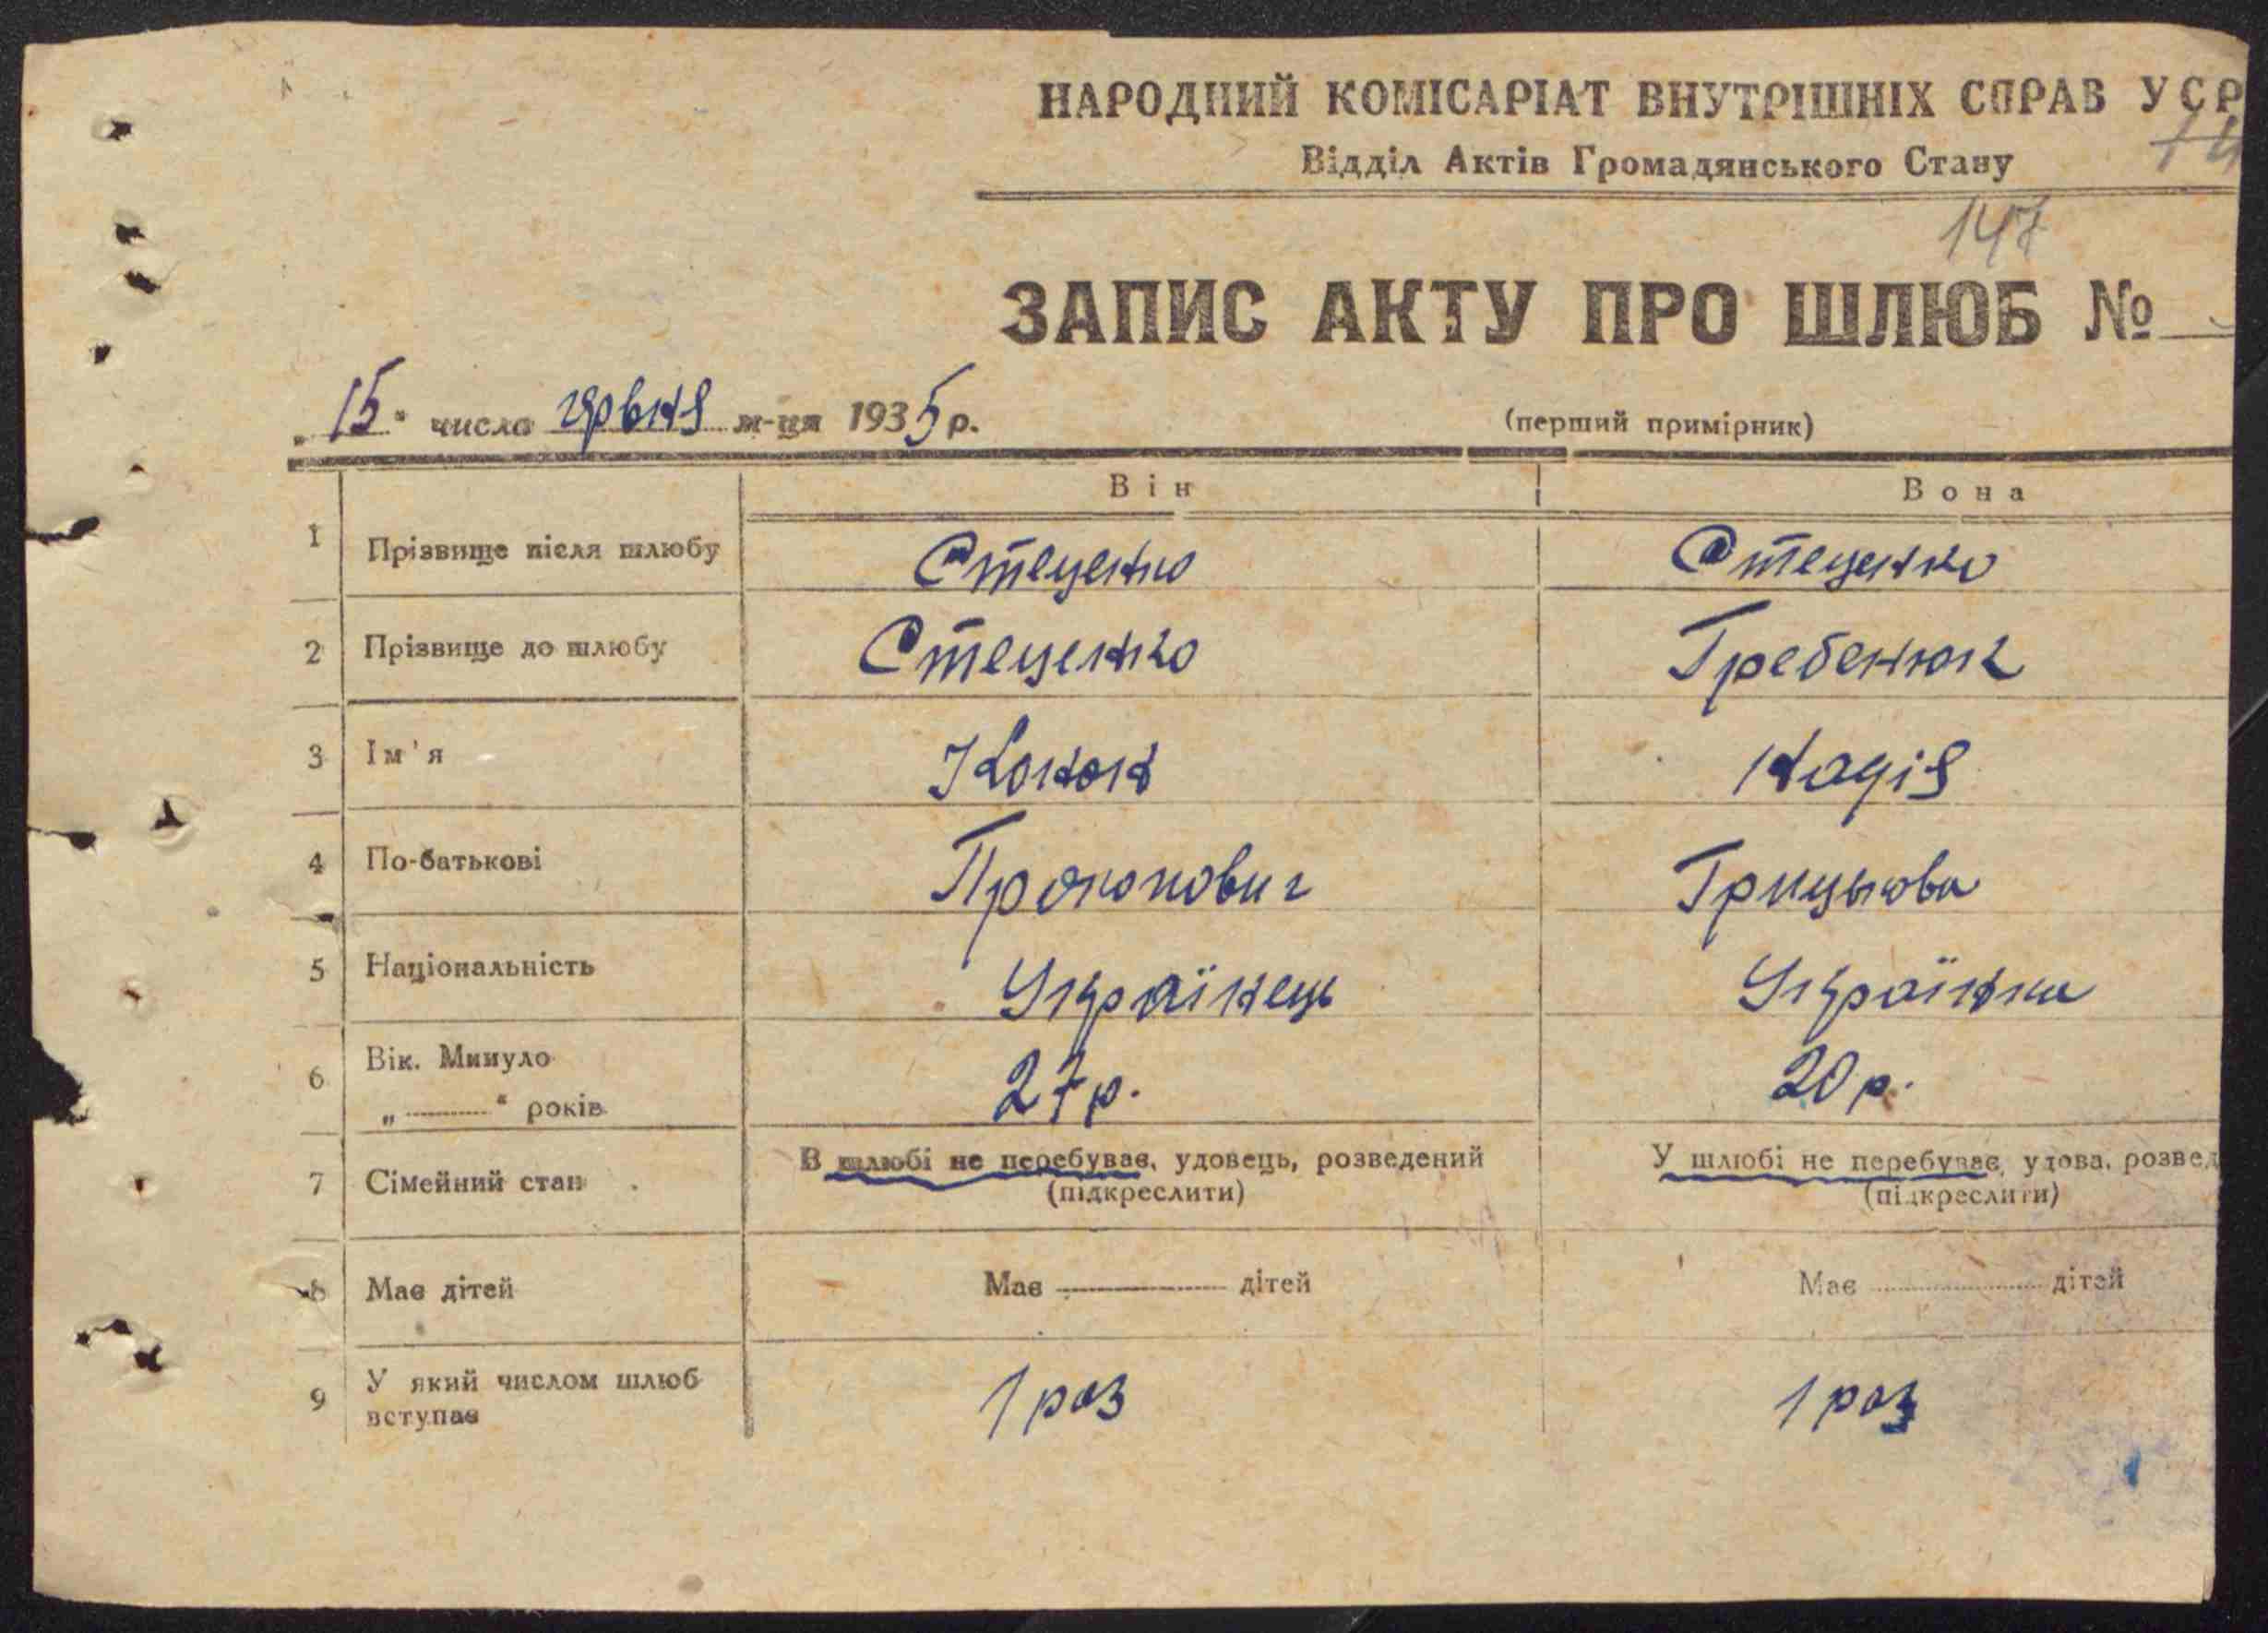 НАРОДНИЙ КОМІСАРІАТ ВНУТРІШНІХ СПРАВ УСР
Відділ Актів Громадянського Стану
147
ЗАПИС АКТУ ПРО ШЛЮБ №
"15" числа червня м-ця 1935 р.
(перший примірник)
Він Вона
1 Прізвище після шлюбу Стеценко Стеценко
2 Прізвище до шлюбу Стеценко Гребенюк
3 Ім'я Конон Надія
4 По-батькові Прокопович Грицькова
5 Національність Українець Українка
6 Вік. Минуло 27 р. 20 р.
„ " років
7 Сімейний стан В шлюбі не перебуває, удовець, розведений У шлюбі не перебуває, удова, розвед
(підкреслити) (підкреслити)
8 Має дітей Має дітей Має дітей
9 У який числом шлюб 1 раз 1 раз
вступає